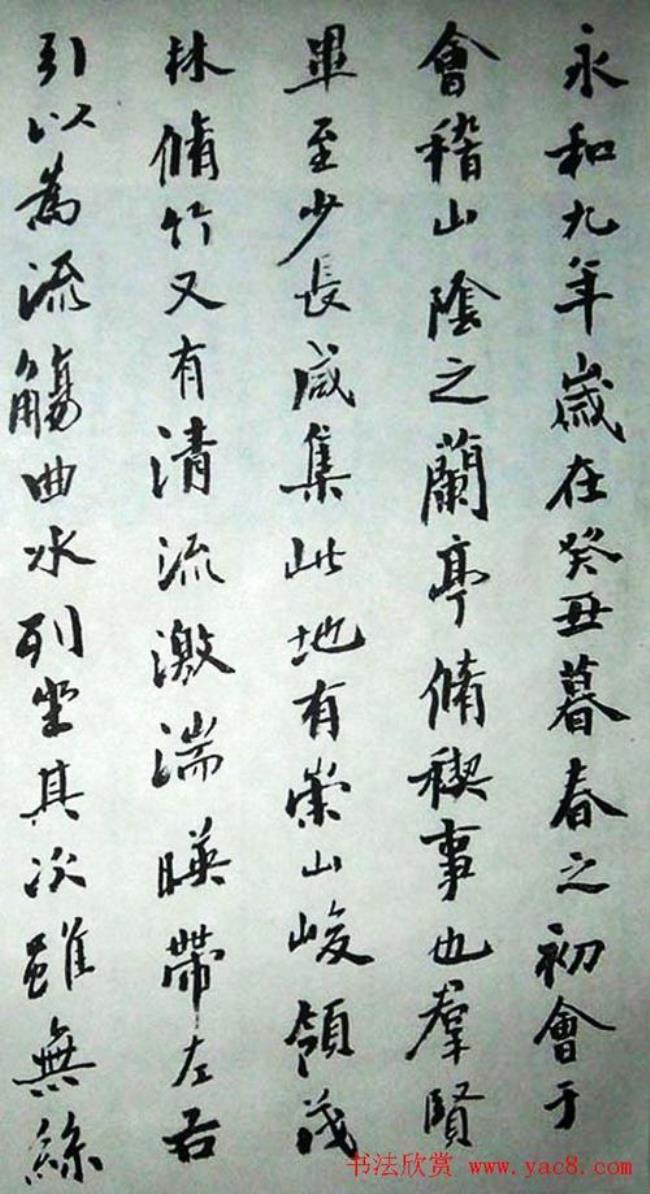 永和九年歲在癸丑暮春之初會于
會稽山陰之蘭亭脩稧事也羣賢
畢至少長咸集此地有崇山峻領茂
林脩竹又有清流激湍暎帶左右
引以為流觴曲水列坐其次雖無絲
书法欣赏 www.yac8.com